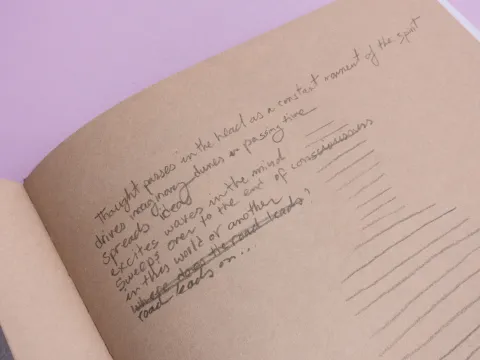 Thought passes in the head as a constant moment of the spot
drives imaginary dunes in passing time
spreads ideas
excites waves in the mind
sweeps over to the end of consciousness
in this world or another
where does the road leads?
road leads on...